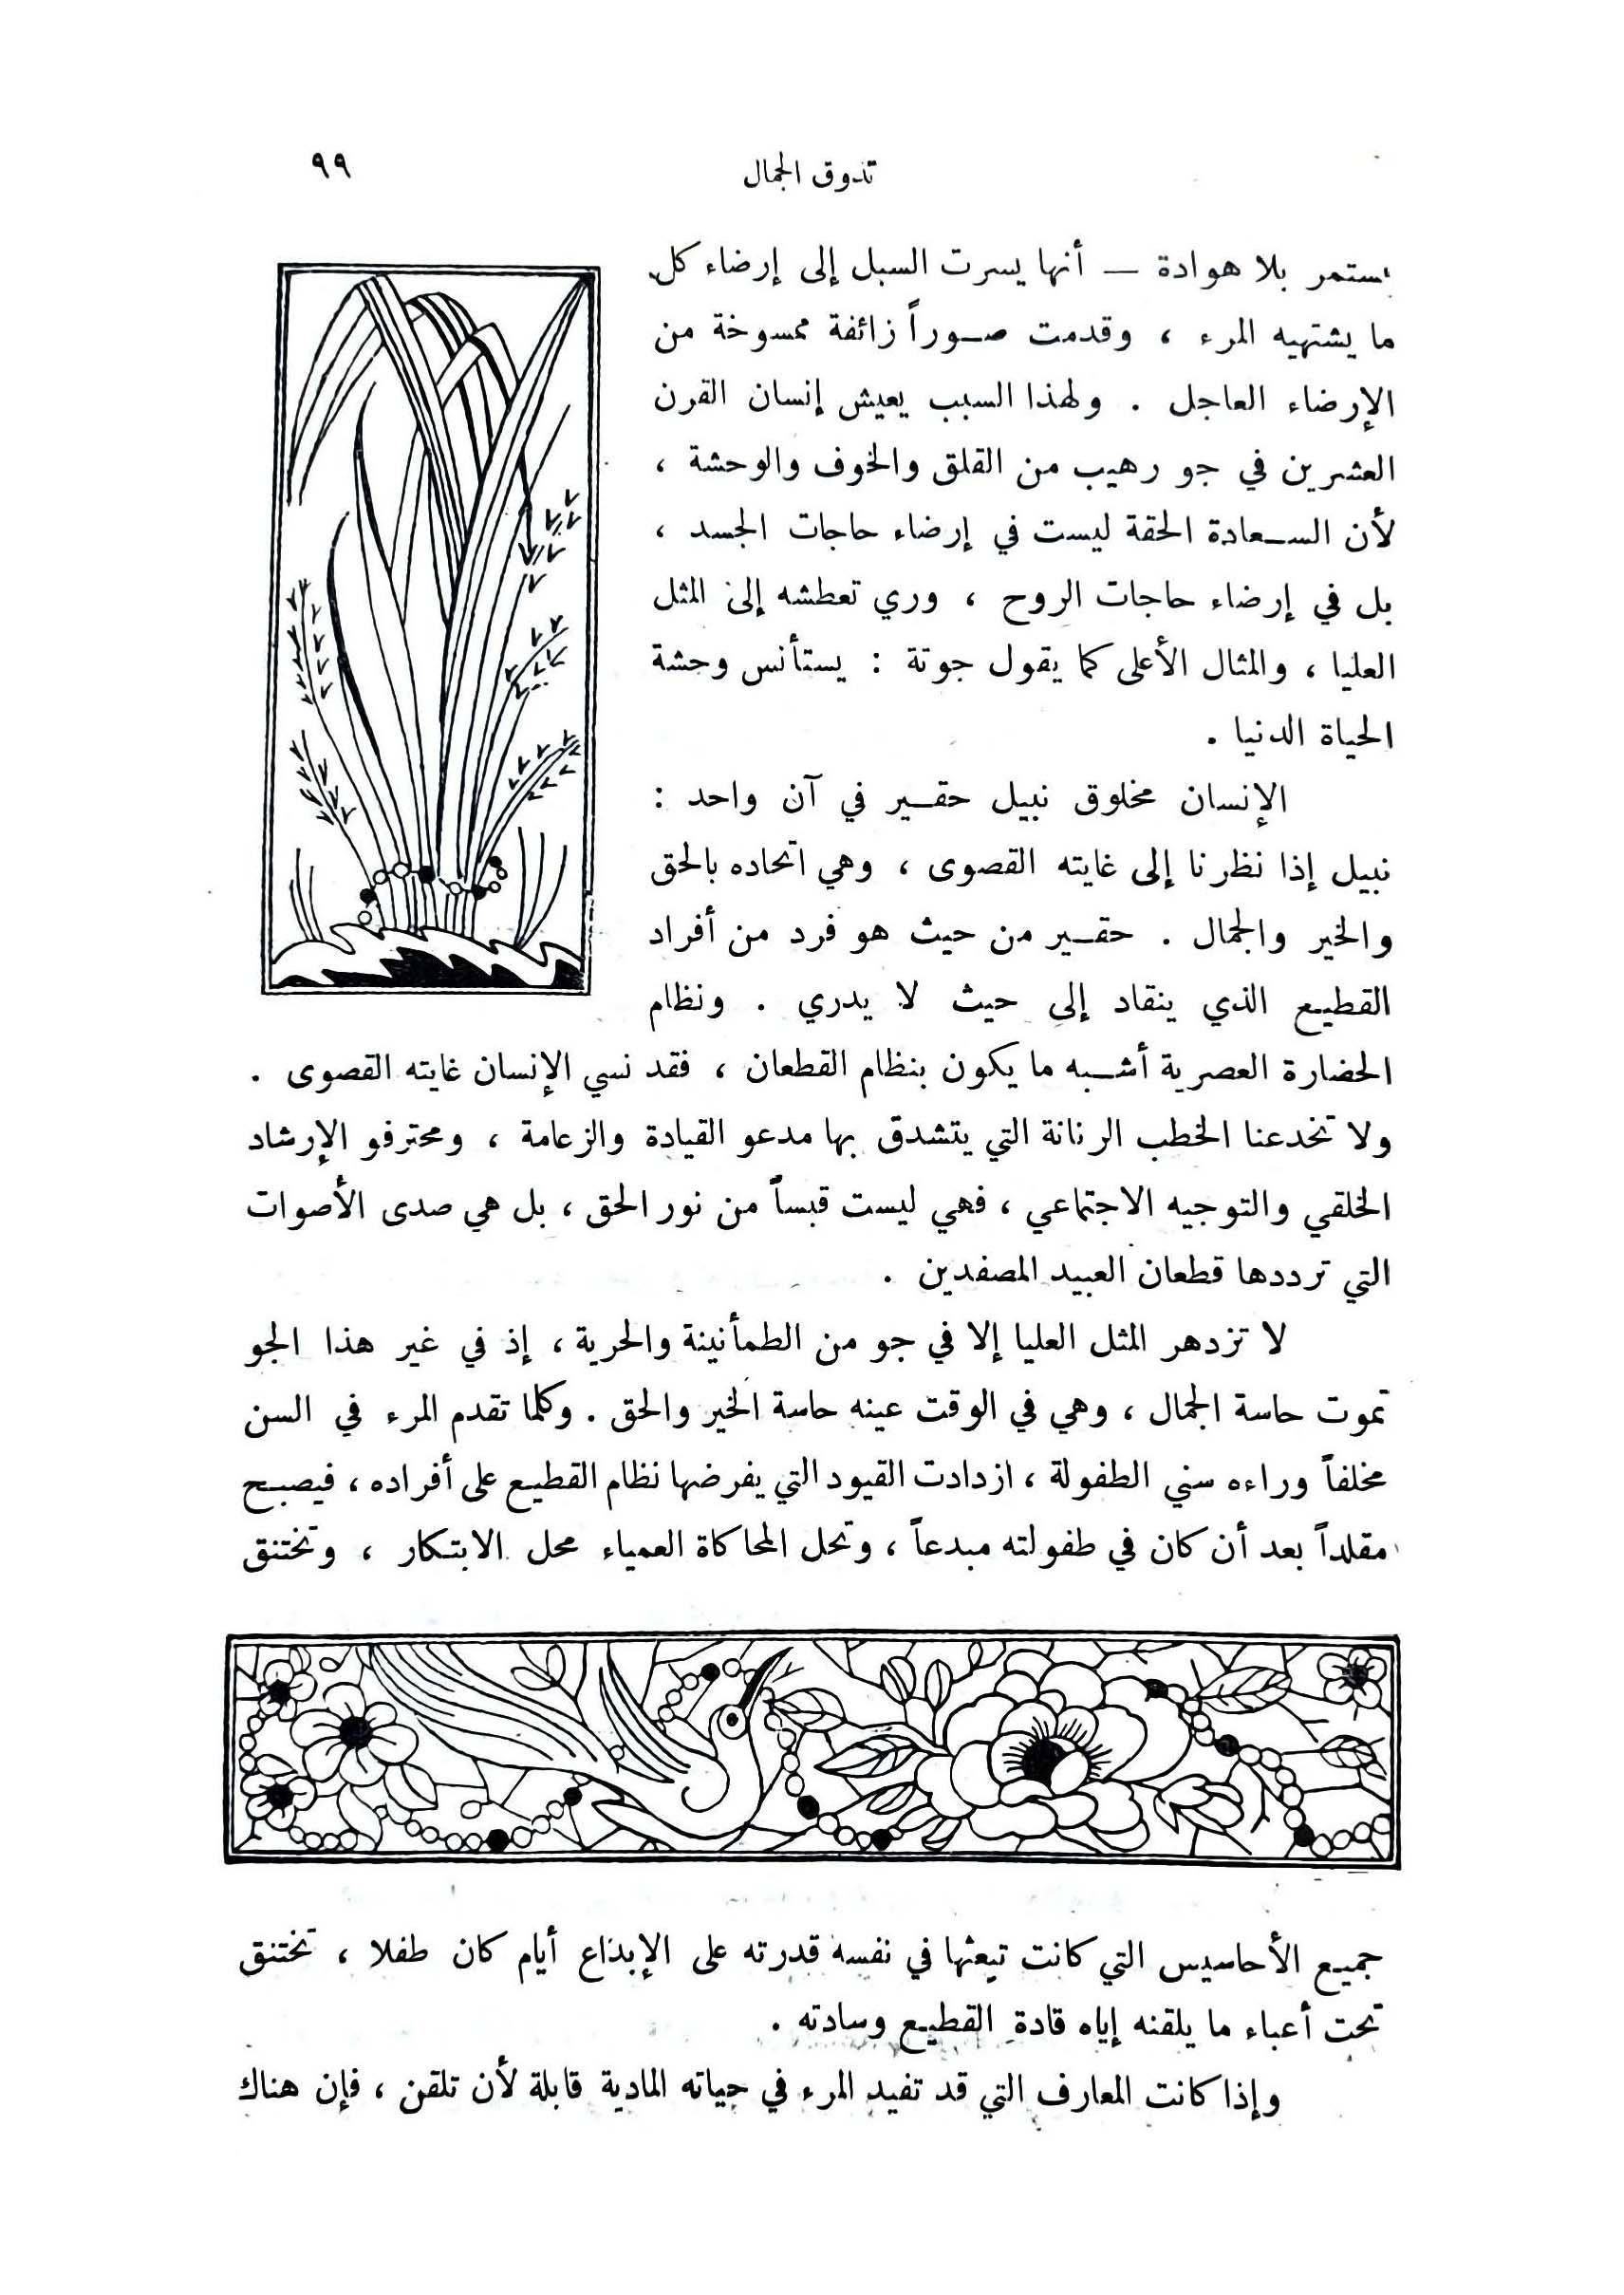 تذوق الجمال ٩٩
تستمر بلا هوادة — أنها يسرت السبل إلى إرضاء كل
ما يشتهيه المرء ، وقدمت صوراً زائفة ممسوخة من
الإرضاء العاجل . ولهذا السبب يعيش إنسان القرن
العشرين في جو رهيب من القلق والخوف والوحشة ،
لأن السعادة الحقة ليست في إرضاء حاجات الجسد ،
بل في إرضاء حاجات الروح ، وري تعطشه إلى المثل
العليا ، والمثال الأعلى كما يقول جوتة : يستأنس وحشة
الحياة الدنيا .
الإنسان مخلوق نبيل حقير في آن واحد :
نبيل إذا نظرنا إلى غايته القصوى ، وهي اتحاده بالحق
والخير والجمال . حقير من حيث هو فرد من أفراد
القطيع الذي ينقاد إلى حيث لا يدري . ونظام
الحضارة العصرية أشبه ما يكون بنظام القطعان ، فقد نسي الإنسان غايته القصوى .
ولا تخدعنا الخطب الرنانة التي يتشدق بها مدعو القيادة والزعامة ، ومحترفو الإرشاد
الخلقي والتوجيه الاجتماعي ، فهي ليست قبساً من نور الحق ، بل هي صدى الأصوات
التي ترددها قطعان العبيد المصفدين .
لا تزدهر المثل العليا إلا في جو من الطمأنينة والحرية ، إذ في غير هذا الجو
تموت حاسة الجمال ، وهي في الوقت عينه حاسة الخير والحق . وكلما تقدم المرء في السن
مخلفاً وراءه سني الطفولة ، ازدادت القيود التي يفرضها نظام القطيع على أفراده ، فيصبح
مقلداً بعد أن كان في طفولته مبدعاً ، وتحل المحاكاة العمياء محل الابتكار ، وتختنق
جميع الأحاسيس التي كانت تبعثها في نفسه قدرته على الإبداع أيام كان طفلا ، تختنق
تحت أعباء ما يلقنه إياه قادة القطيع وسادته .
وإذا كانت المعارف التي قد تفيد المرء في حياته المادية قابلة لأن تلقن ، فإن هناك